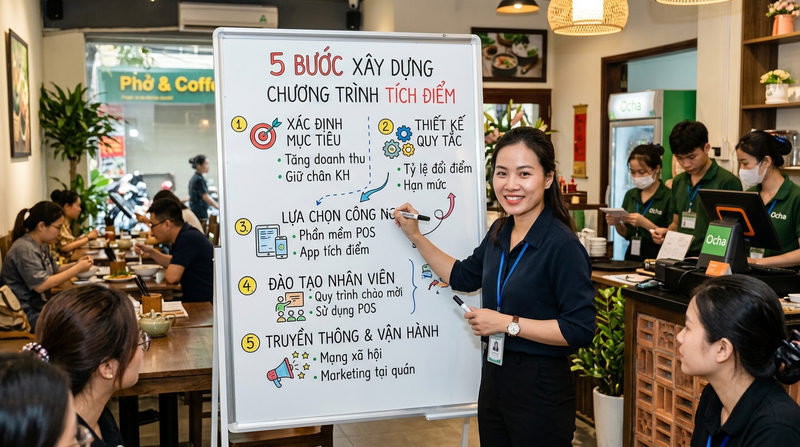 5 BƯỚC XÂY DỰNG
CHƯƠNG TRÌNH TÍCH ĐIỂM
1 XÁC ĐỊNH
MỤC TIÊU
• Tăng doanh thu
• Giữ chân KH
2 THIẾT KẾ
QUY TẮC
• Tỷ lệ đổi điểm
• Hạn mức
3 LỰA CHỌN CÔNG
• Phần mềm POS
• App tích điểm
4 ĐÀO TẠO NHÂN VIÊN
• Quy trình chào mời
• Sử dụng POS
5 TRUYỀN THÔNG & VẬN HÀNH
• Mạng xã hội
• Marketing tại quán
Phở & Coffe
Ocha
Ocha
Ocha
Ocha